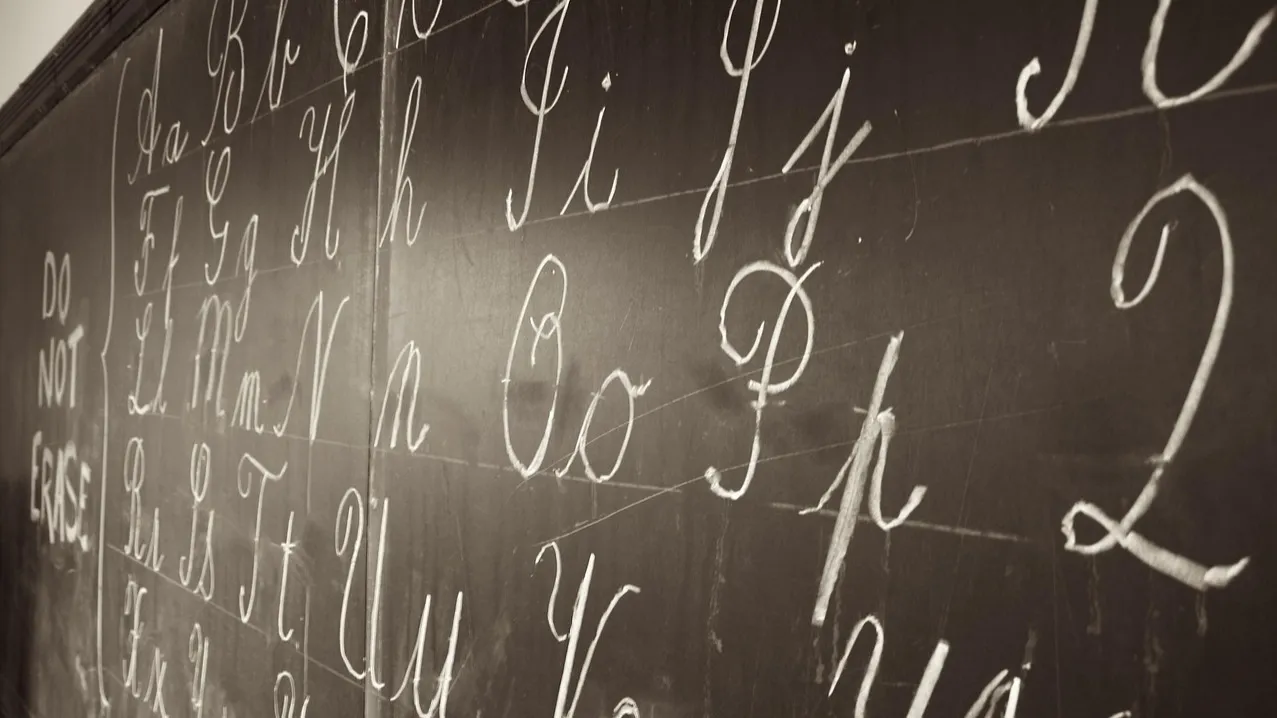 DO
NOT
ERASE
Aa Bb C
Ff Gg Hh Ii Jj
Ll Mm Nn Oo Pp Q
Rr Ss Tt Uu V
Xx